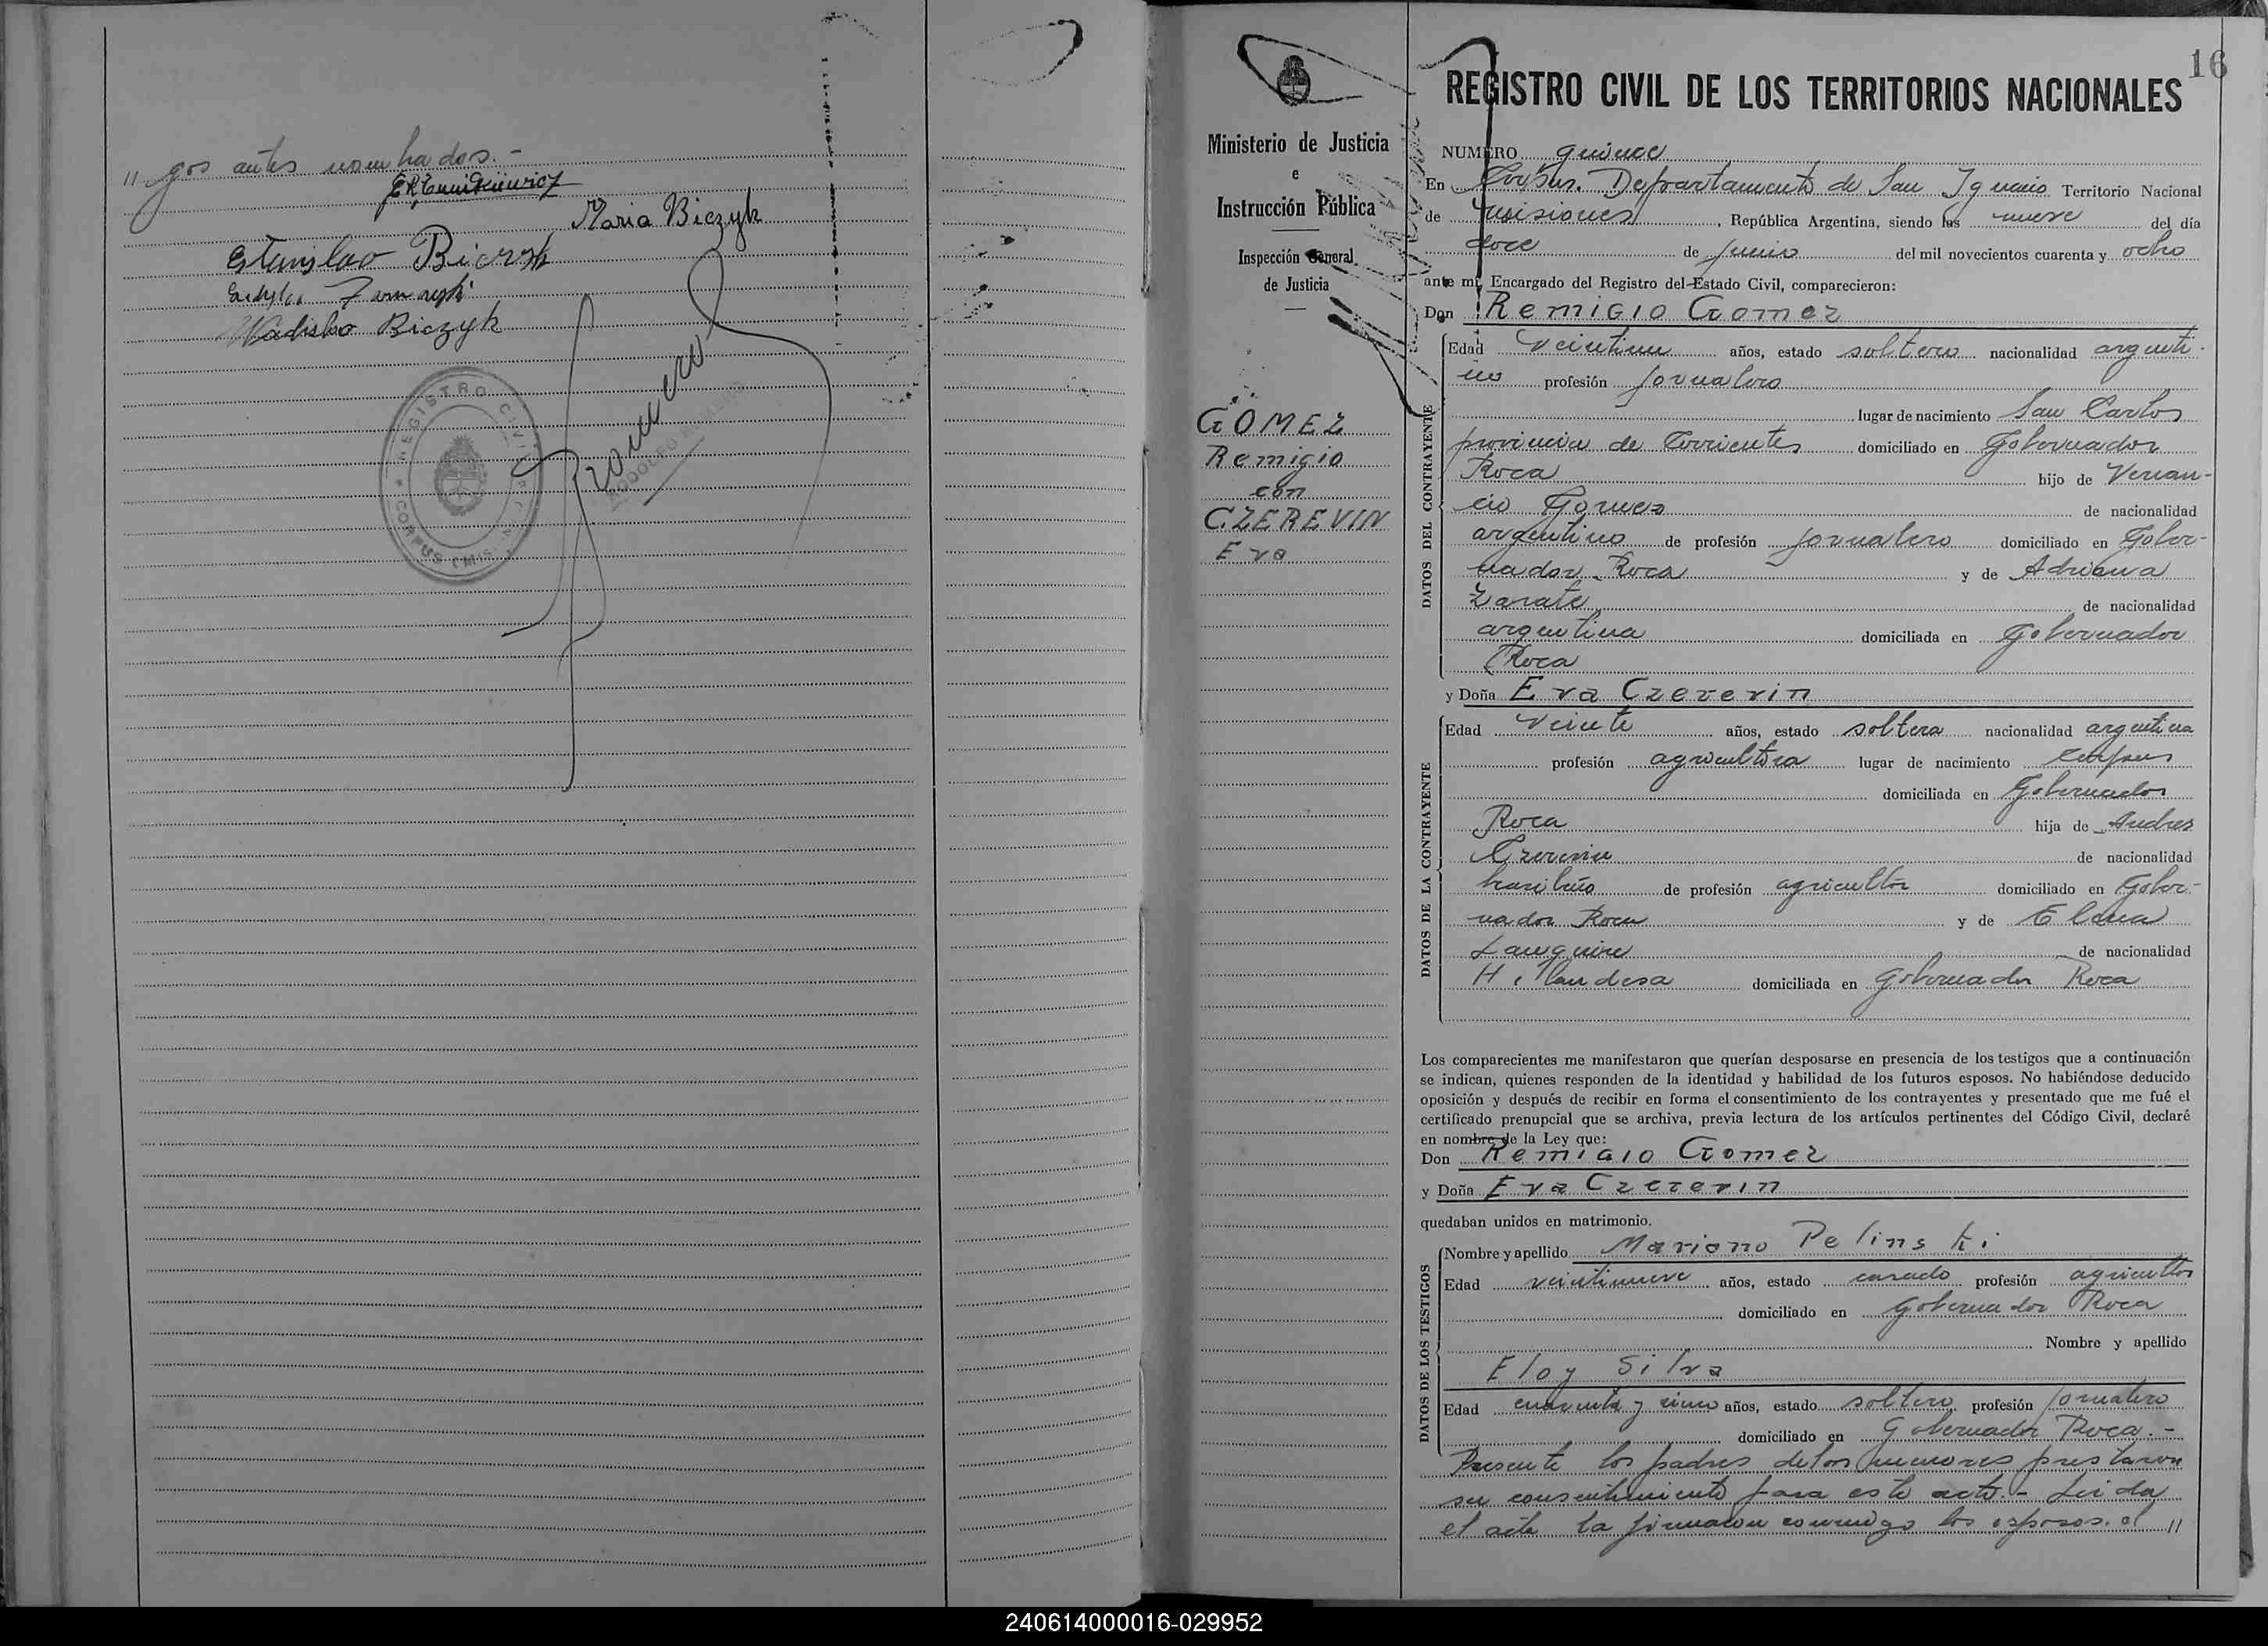 " gos antes nombrados.-
Maria Biczyk
Estanislao Biczyk
Wadislao Biczyk
REGISTRO CIVIL
CORPUS (MISIONES)
Romero
RODOLFO ROMERO
16
Ministerio de Justicia
e
Instrucción Pública
Inspección General
de Justicia
GOMEZ
Remigio
con
CZEREVIN
Eva
REGISTRO CIVIL DE LOS TERRITORIOS NACIONALES
NUMERO quince
En Corpus. Departamento de San Ignacio Territorio Nacional
de Misiones, República Argentina, siendo las nueve del día
doce de junio del mil novecientos cuarenta y ocho
ante mí, Encargado del Registro del Estado Civil, comparecieron:
Don Remigio Gomez
DATOS DEL CONTRAYENTE
Edad veintiun años, estado soltero nacionalidad argenti-
no profesión jornalero
lugar de nacimiento San Carlos
provincia de Corrientes domiciliado en Gobernador
Roca hijo de Venan-
cio Gomez de nacionalidad
argentino de profesión jornalero domiciliado en Gober-
nador Roca y de Adriana
Zarate de nacionalidad
argentina domiciliada en Gobernador
Roca
y Doña Eva Czerevin
DATOS DE LA CONTRAYENTE
Edad veinte años, estado soltera nacionalidad argentina
profesión agricultora lugar de nacimiento Corpus
domiciliada en Gobernador
Roca hija de Andres
Czerevin de nacionalidad
brasileño de profesión agricultor domiciliado en Gober-
nador Roca y de Elena
de nacionalidad
Holandesa domiciliada en Gobernador Roca
Los comparecientes me manifestaron que querían desposarse en presencia de los testigos que a continuación
se indican, quienes responden de la identidad y habilidad de los futuros esposos. No habiéndose deducido
oposición y después de recibir en forma el consentimiento de los contrayentes y presentado que me fué el
certificado prenupcial que se archiva, previa lectura de los artículos pertinentes del Código Civil, declaré
en nombre de la Ley que:
Don Remigio Gomez
y Doña Eva Czerevin
quedaban unidos en matrimonio.
DATOS DE LOS TESTIGOS
Nombre y apellido Mariano Pelinski
Edad veintinueve años, estado casado profesión agricultor
domiciliado en Gobernador Roca
Nombre y apellido
Eloy Silva
Edad cuarenta y cinco años, estado soltero profesión jornalero
domiciliado en Gobernador Roca.-
Presente los padres de los menores prestaron
su consentimiento para este acto.- Leida
el acta la firmaron conmigo los esposos. el "
240614000016-029952